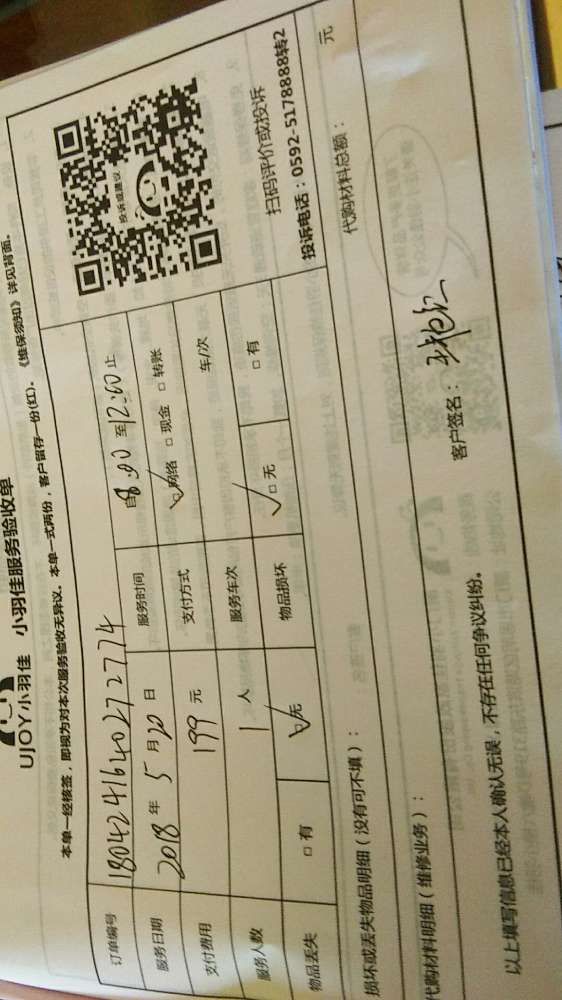 UJOY小羽佳 小羽佳服务验收单
本单一经核签，即视为对本次服务验收无异议。本单一式两份，客户留存一份(红)。《维保须知》详见背面。
订单编号 18042416402722774
服务日期 2018 年 5 月 20 日 服务时间 自 8:00 至 12:00 止
支付费用 199 元 支付方式 ☑网络 □现金 □转账
服务人数 1 人 服务车次 车/次
物品丢失 □有 ☑无 物品损坏 ☑无 □有
投诉或建议
扫码评价或投诉
投诉电话：0592-5178888转2
损坏或丢失物品明细（没有可不填）：
代购材料明细（维修业务）： 代购材料总额： 元
以上填写信息已经本人确认无误，不存在任何争议纠纷。 客户签名：